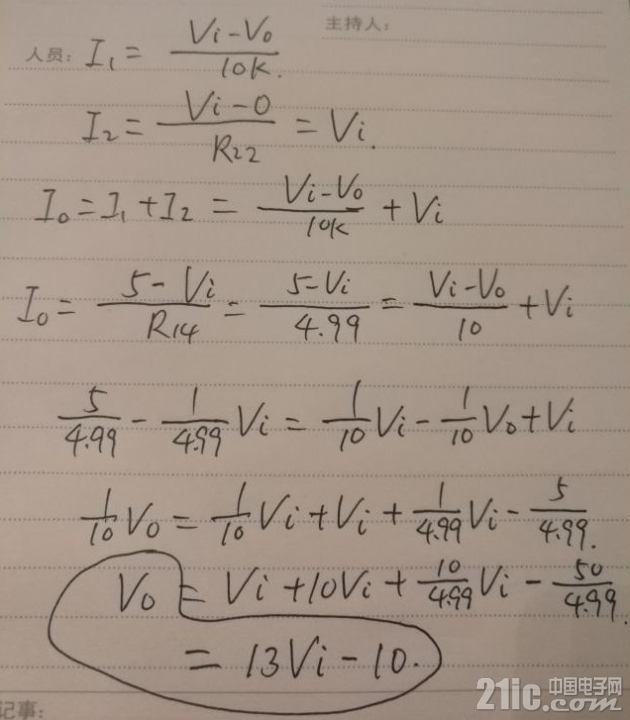 主持人:
人员: I₁ = (Vi-V₀)/10K.
I₂ = (Vi-0)/R22 = Vi.
I₀ = I₁ + I₂ = (Vi-V₀)/10K + Vi
I₀ = (5-Vi)/R14 = (5-Vi)/4.99 = (Vi-V₀)/10 + Vi
5/4.99 - 1/4.99 Vi = 1/10 Vi - 1/10 V₀ + Vi
1/10 V₀ = 1/10 Vi + Vi + 1/4.99 Vi - 5/4.99.
V₀ = Vi + 10Vi + 10/4.99 Vi - 50/4.99.
= 13Vi - 10.
记事:
21ic中国电子网.com